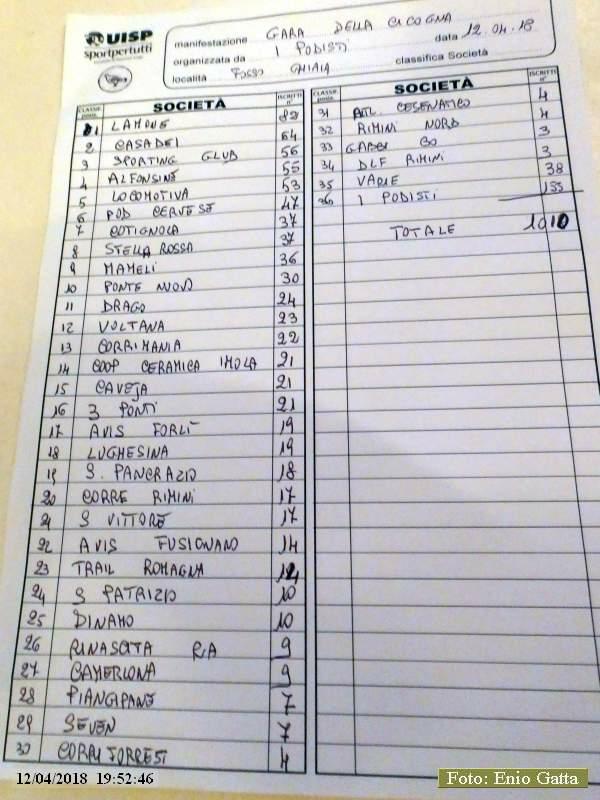 UISP
Sportpertutti
manifestazione GARA DELLA CICOGNA
organizzata da I PODISTI data 12.04.18
località FOSSO GHIAIA classifica Società
CLASSIF. SOCIETÀ ISCRITTI n°
1 LAMONE
2 CASADEI 64
3 SPORTING CLUB 56
4 ALFONSINE 55
5 LOCOMOTIVA 53
6 POD CERVESE 47
7 COTIGNOLA 37
8 STELLA ROSSA 37
9 MAMELI 36
10 PONTE NUOVO 30
11 DRAGO 24
12 VOLTANA 23
13 CORRIMANIA 22
14 COOP CERAMICA IMOLA 21
15 CAVEJA 21
16 3 PONTI 21
17 AVIS FORLÌ 19
18 LUGHESINA 19
19 S. PANCRAZIO 18
20 CORRE RIMINI 17
21 S VITTORE 17
22 AVIS FUSIGNANO 14
23 TRAIL ROMAGNA
24 S PATRIZIO 10
25 DINAMO 10
26 RINASCITA RA 9
27 CAMERLONA 9
28 PIANGIPANE 7
29 SEVEN 7
30 CORRI FORREST 4
CLASSIF. SOCIETÀ ISCRITTI n°
31 ATL. CESENATICO 4
32 RIMINI NORD 4
33 GABBI BO 3
34 DLF RIMINI 3
35 VARIE 38
36 I PODISTI 155
TOTALE 1010
12/04/2018 19:52:46
Foto: Enio Gatta